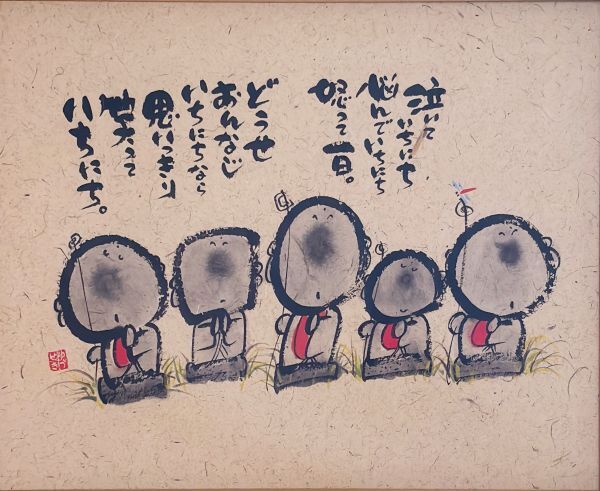 泣いて
いちにち
悩んでいちにち
怒って一日。
どうせ
おんなじ
いちにちなら
思いっきり
笑って
いちにち。